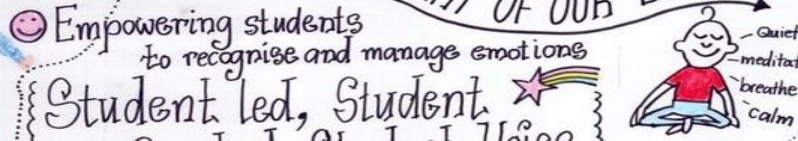 OF OUR
Empowering students
to recognise and manage emotions
Student led, Student
Student Voice
Quiet
meditat
breathe
calm